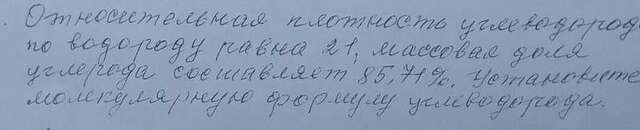 Относительная плотность углеводород
по водороду равна 21, массовая доля
углерода составляет 85,71%. Установите
молекулярную формулу углеводорода.